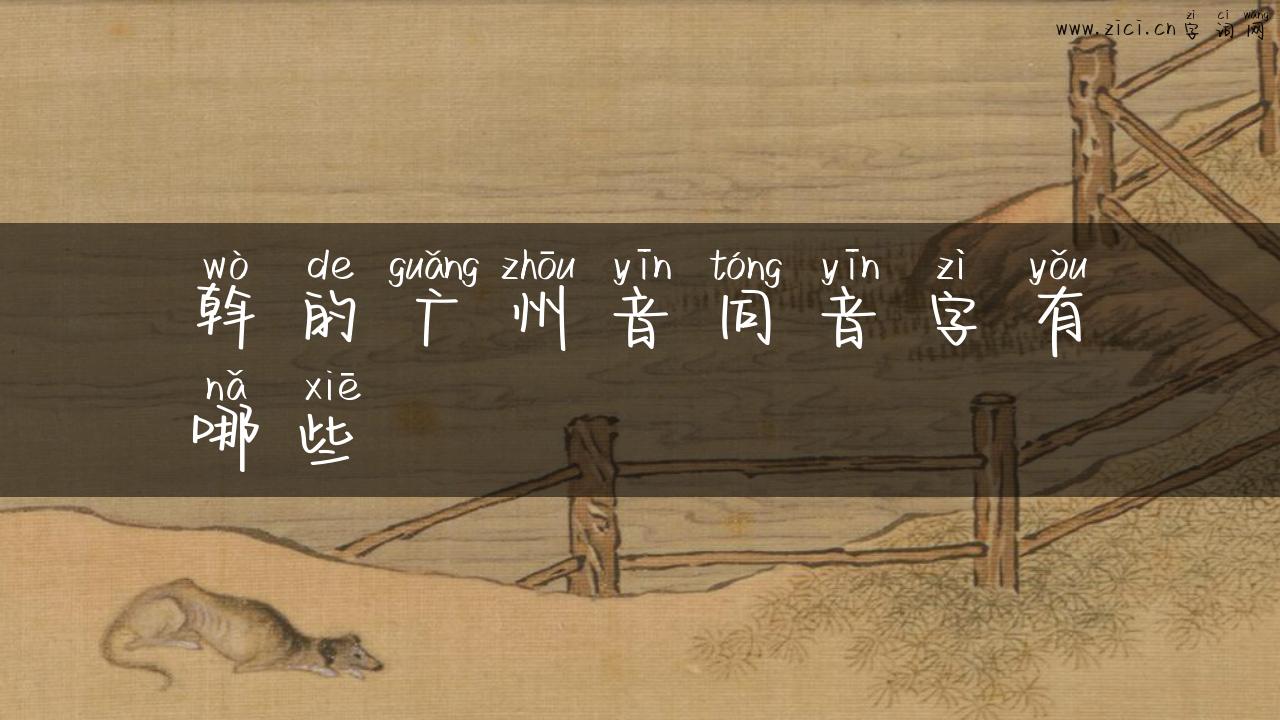 zi ci wang
www.zici.cn 字词网
wò de guǎng zhōu yīn tóng yīn zì yǒu
斡的广州音同音字有
nǎ xiē
哪些